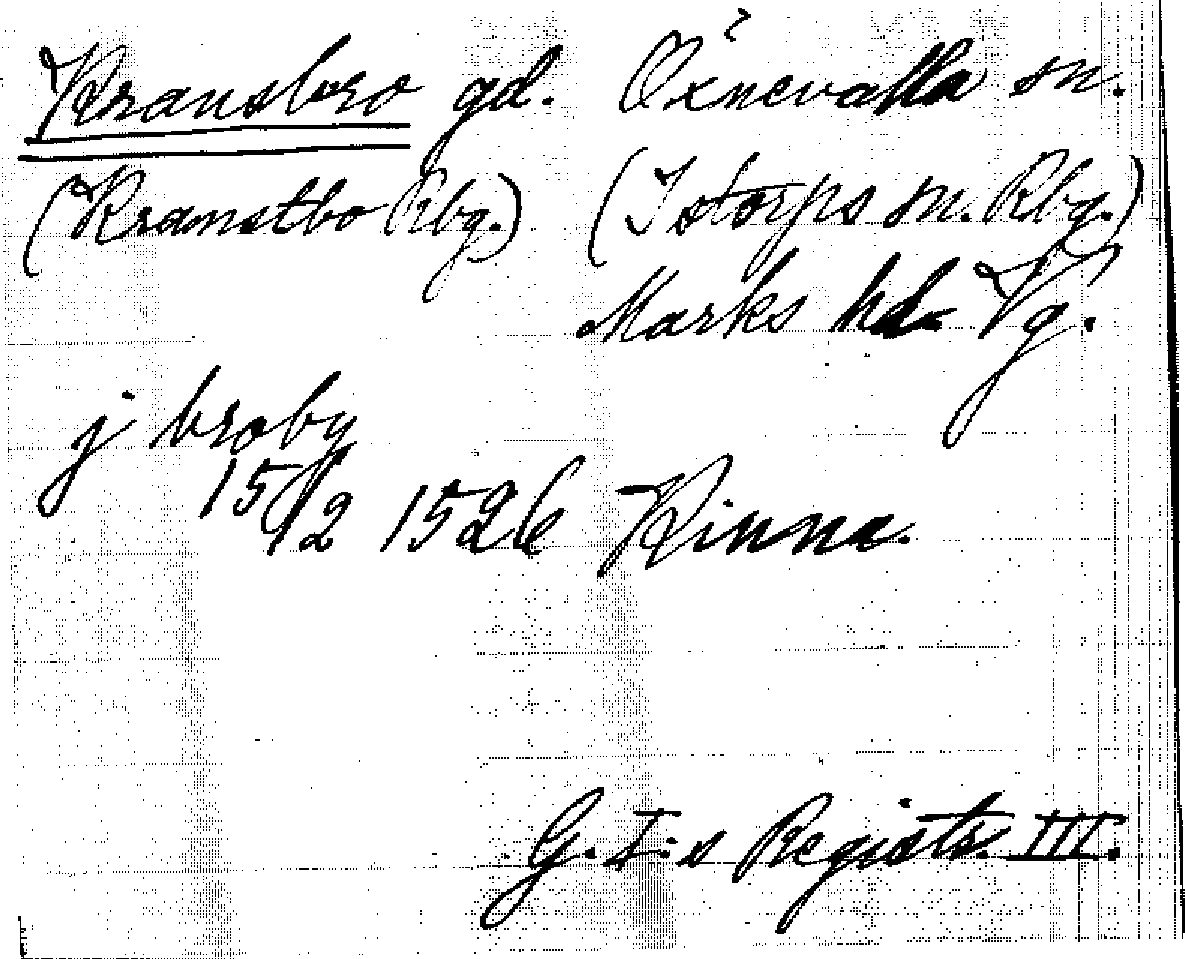 Kransbro gd. Öxnevalla sn.
(Kramstbo Rbg.) (Istorps sn. Rbg.)
Marks hd. Vg.
j broby
15/2 1526 Kinna.
G. I:s Registr. III.